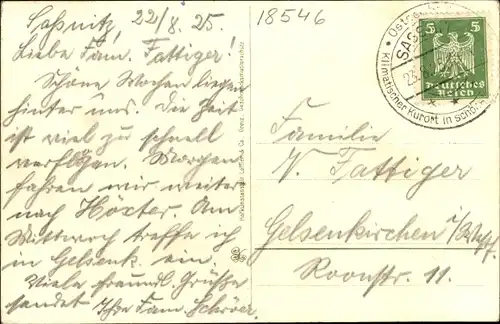 Saßnitz, 22/8. 25.
Liebe Fam. Fattiger!
Schöne Wochen liegen
hinter uns. Die Zeit
ist viel zu schnell
verflogen. Morgen
fahren wir weiter
nach Höxter. Am
Mittwoch treffe ich
in Gelsenk. ein.
Viele freundl. Grüße
sendet Ihre Fam. Schröer.
18546
Familie
N. Fattiger
Gelsenkirchen i/Westf.
Roonstr. 11.
5 5
Deutsches
Reich
Klimatischer Kurort in